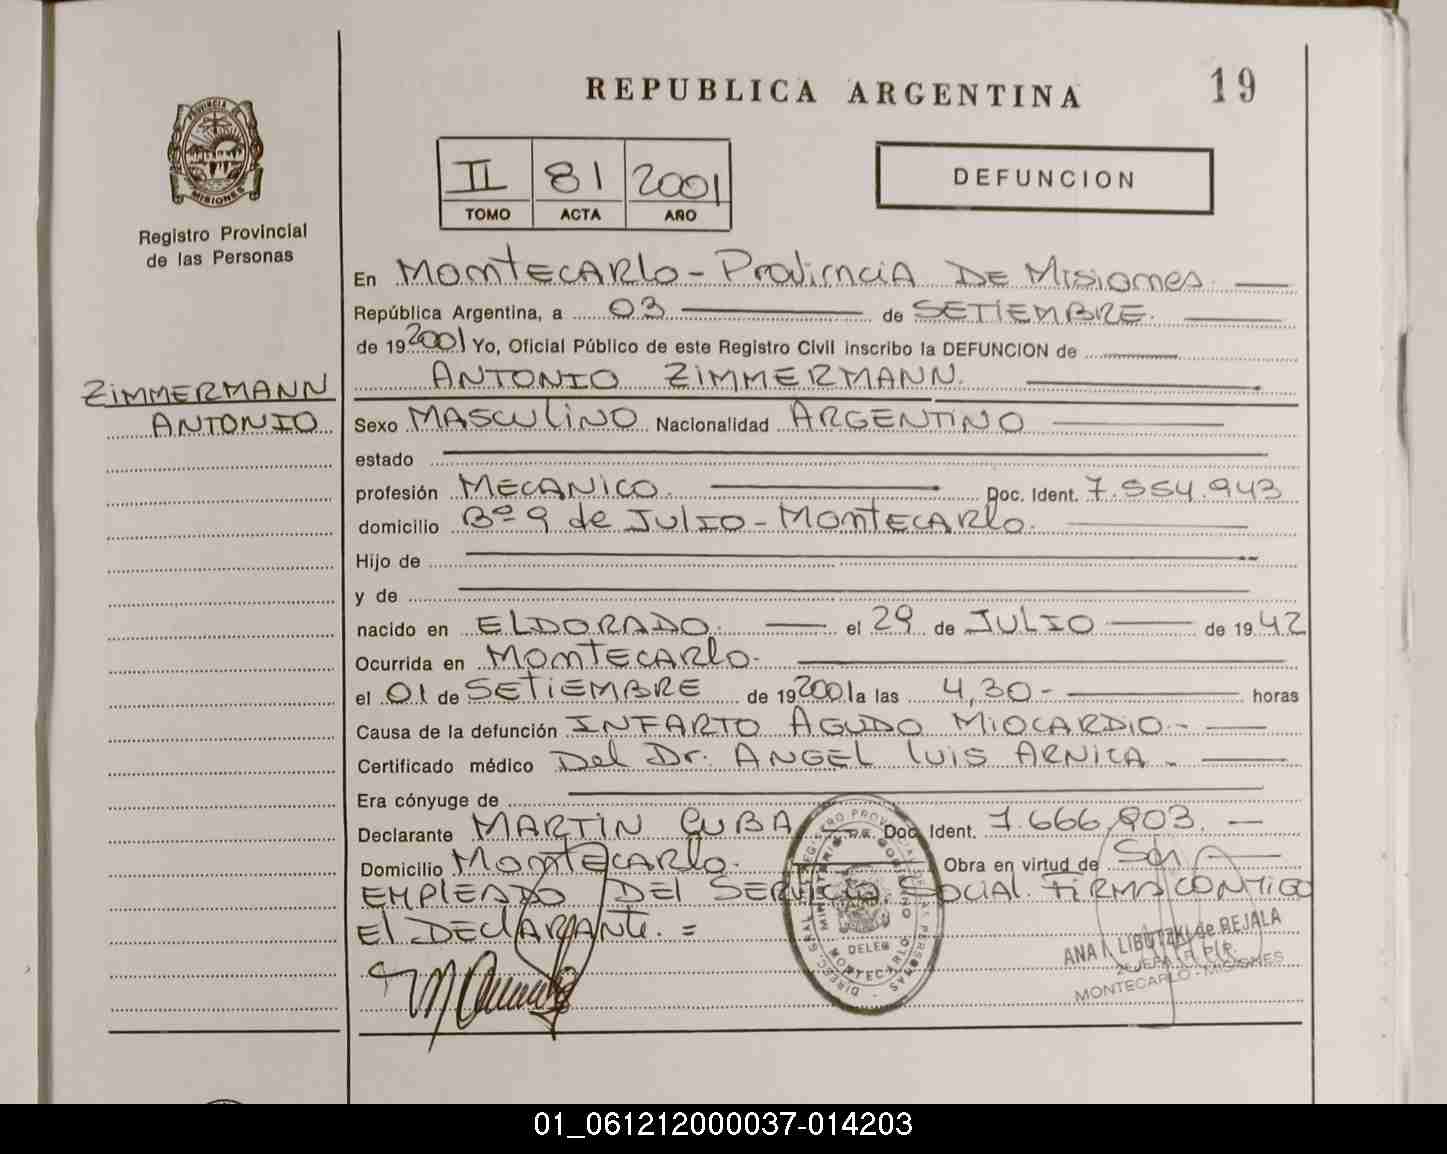 REPUBLICA ARGENTINA
19
PROVINCIA DE
MISIONES
Registro Provincial
de las Personas
II 81 2001
TOMO ACTA AÑO
DEFUNCION
En Montecarlo - Provincia De Misiones
República Argentina, a 03 de SETIEMBRE.
de 192001 Yo, Oficial Público de este Registro Civil inscribo la DEFUNCION de
ANTONIO ZIMMERMANN.
ZIMMERMANN
ANTONIO
Sexo MASCULINO Nacionalidad ARGENTINO
estado
profesión MECANICO. Doc. Ident. 7.554.943
domicilio Bº 9 de Julio - Montecarlo.
Hijo de
y de
nacido en ELDORADO. el 29 de JULIO de 1942
Ocurrida en Montecarlo.
el 01 de SETIEMBRE de 192001 a las 4,30- horas
Causa de la defunción INFARTO AGUDO MIOCARDIO -
Certificado médico Del Dr. ANGEL LUIS ARNICA -
Era cónyuge de
Declarante MARTIN CUBA Doc. Ident. 7.666,903.
Domicilio Montecarlo. Obra en virtud de Ser
EMPLEADO DEl SERVICIO SOCIAL. FIRMA CONMIGO
El DEClARANte. =
DELEG
MONTECARLO
ANA I. LIBUTZKI de BEJALA
MONTECARLO - MISIONES
01_061212000037-014203